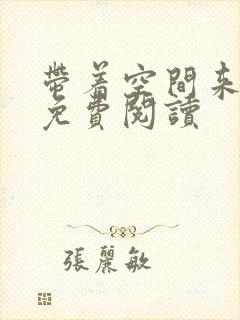 帶着空間来
免費閱讀
張麗敏